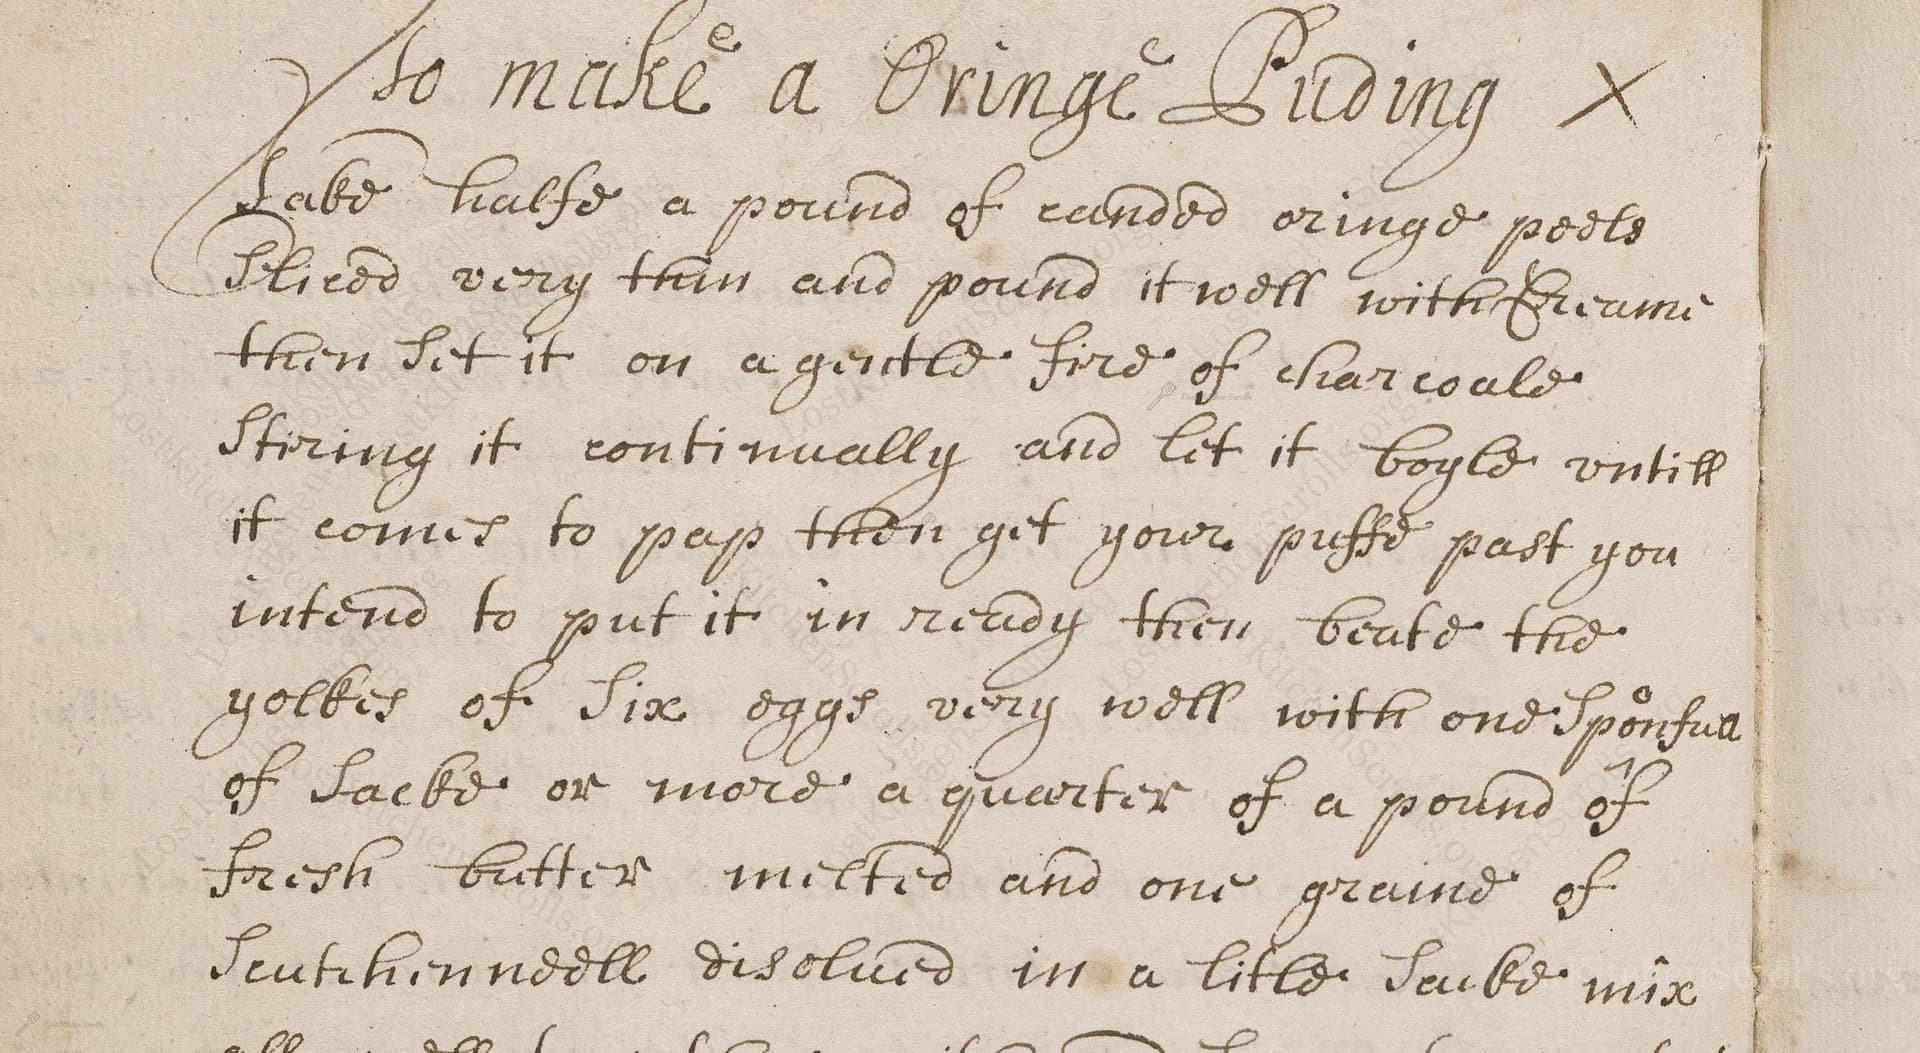 to make a Oringe Puding X
Take halfe a pound of canded oringe peele
Sliced very thin and pound it well with Creame
then Set it on a gentle fire of charcoale
Stiring it continually and let it boyle vntill
it comes to pap then get your puffe past you
intend to put it in ready then beate the
yolkes of Six eggs very well with one Sponfull
of Sacke or more a quarter of a pound of
fresh butter melted and one graine of
Scutchenneell disolued in a litle Sacke mix